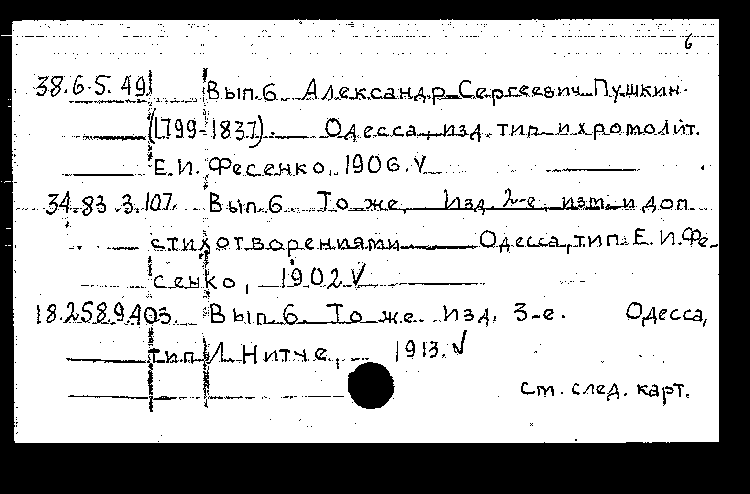 6
38.6.5.49 Вып.6. Александр Сергеевич Пушкин.
(1799-1837). Одесса, изд. тип. и хромолит.
Е.И. Фесенко, 1906. V
34.83.3.107. Вып.6. То же. Изд. 2-е, изм. и доп.
стихотворениями Одесса, тип. Е.И.Фе-
сенко, 1902 V
18.258.9.403. Вып.6. То же. Изд. 3-е. Одесса,
тип. Л. Нитче, 1913. V
ст. след. карт.